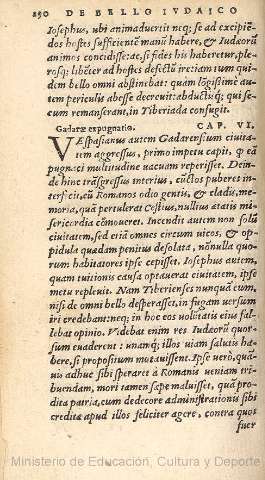 250 DE BELLO IVDAICO
Iosephus, ubi animaduertit neq; se ad excipiē-
dos hostes sufficientē manũ habere, & Iudæorũ
animos concidisse: ac, si fides his haberetur, ple-
rosq; libēter ad hostes defectũ ire: iam tum qui-
dem bello omni abstinebat: quàm lōgissimè au-
tem periculis abesse decreuit: abductisq; qui se-
cum remanserant, in Tiberiada confugit.
Gadaræ expugnatio. CAP. VI.
VEspasianus autem Gadarensium ciuita-
tem aggressus, primo impetu capit, φ eā
pugnaci multitudine uacuam reperisset. Dein-
de hinc trāsgressus interius, cunctos puberes in-
terficit, cũ Romanos odio gentis, & cladis, me-
moria, quā pertulerat Cestius, nullius ætatis mi-
sericordia cōmoueret. Incendit autem non solũ
ciuitatem, sed etiā omnes circum uicos, & op-
pidula quædam penitus desolata, nōnulla quo-
rum habitatores ipse cepisset. Iosephus autem,
quam tuitionis causa optauerat ciuitatem, ipse
metu repleuit. Nam Tiberienses nunquā eum,
nisi de omni bello desperasset, in fugam uersum
iri credebant: neq; in hoc eos uolūtatis eius fal-
lebat opinio. Videbat enim res Iudæorũ quor-
sum euaderent: unamq; illos uiam salutis ha-
bere, si propositum mutauissent. Ipse verò, quā-
uis adhuc sibi speraret à Romanis ueniam tri-
buendam, mori tamen sæpe maluisset, quā pro-
dita patria, cum dedecore administrationis sibi
creditæ apud illos feliciter agere, contra quos
fuer
Ministerio de Educación, Cultura y Deporte